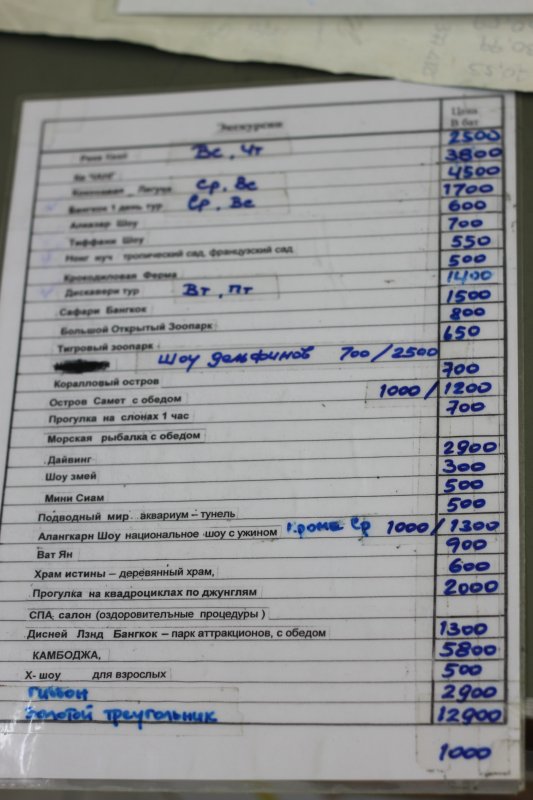 Экскурсии Цена В бат
Река Квай Вс, Чт 2500
3800
Кокосовая Лагуна Ср, Вс 4500
Бангкок 1 день тур Ср, Вс 1700
Алказар Шоу 600
Тиффани Шоу 700
Нонг нуч тропический сад, французский сад 550
Крокодиловая Ферма 500
Дискавери тур Вт, Пт 1400
Сафари Бангкок 1500
Большой Открытый Зоопарк 800
Тигровый зоопарк 650
Шоу дельфинов 700/2500
Коралловый остров 700
Остров Самет с обедом 1000/1200
Прогулка на слонах 1 час 700
Морская рыбалка с обедом
Дайвинг 2900
Шоу змей 300
Мини Сиам 500
Подводный мир аквариум – тунель 500
Алангкарн Шоу национальное шоу с ужином кроме Ср 1000/1300
Ват Ян 900
Храм истины – деревянный храм, 600
Прогулка на квадроциклах по джунглям 2000
СПА, салон (оздоровительные процедуры)
Дисней Лэнд Бангкок – парк аттракционов, с обедом 1300
КАМБОДЖА, 5800
X- шоу для взрослых 500
Гиббон 2900
Золотой треугольник 12900
1000